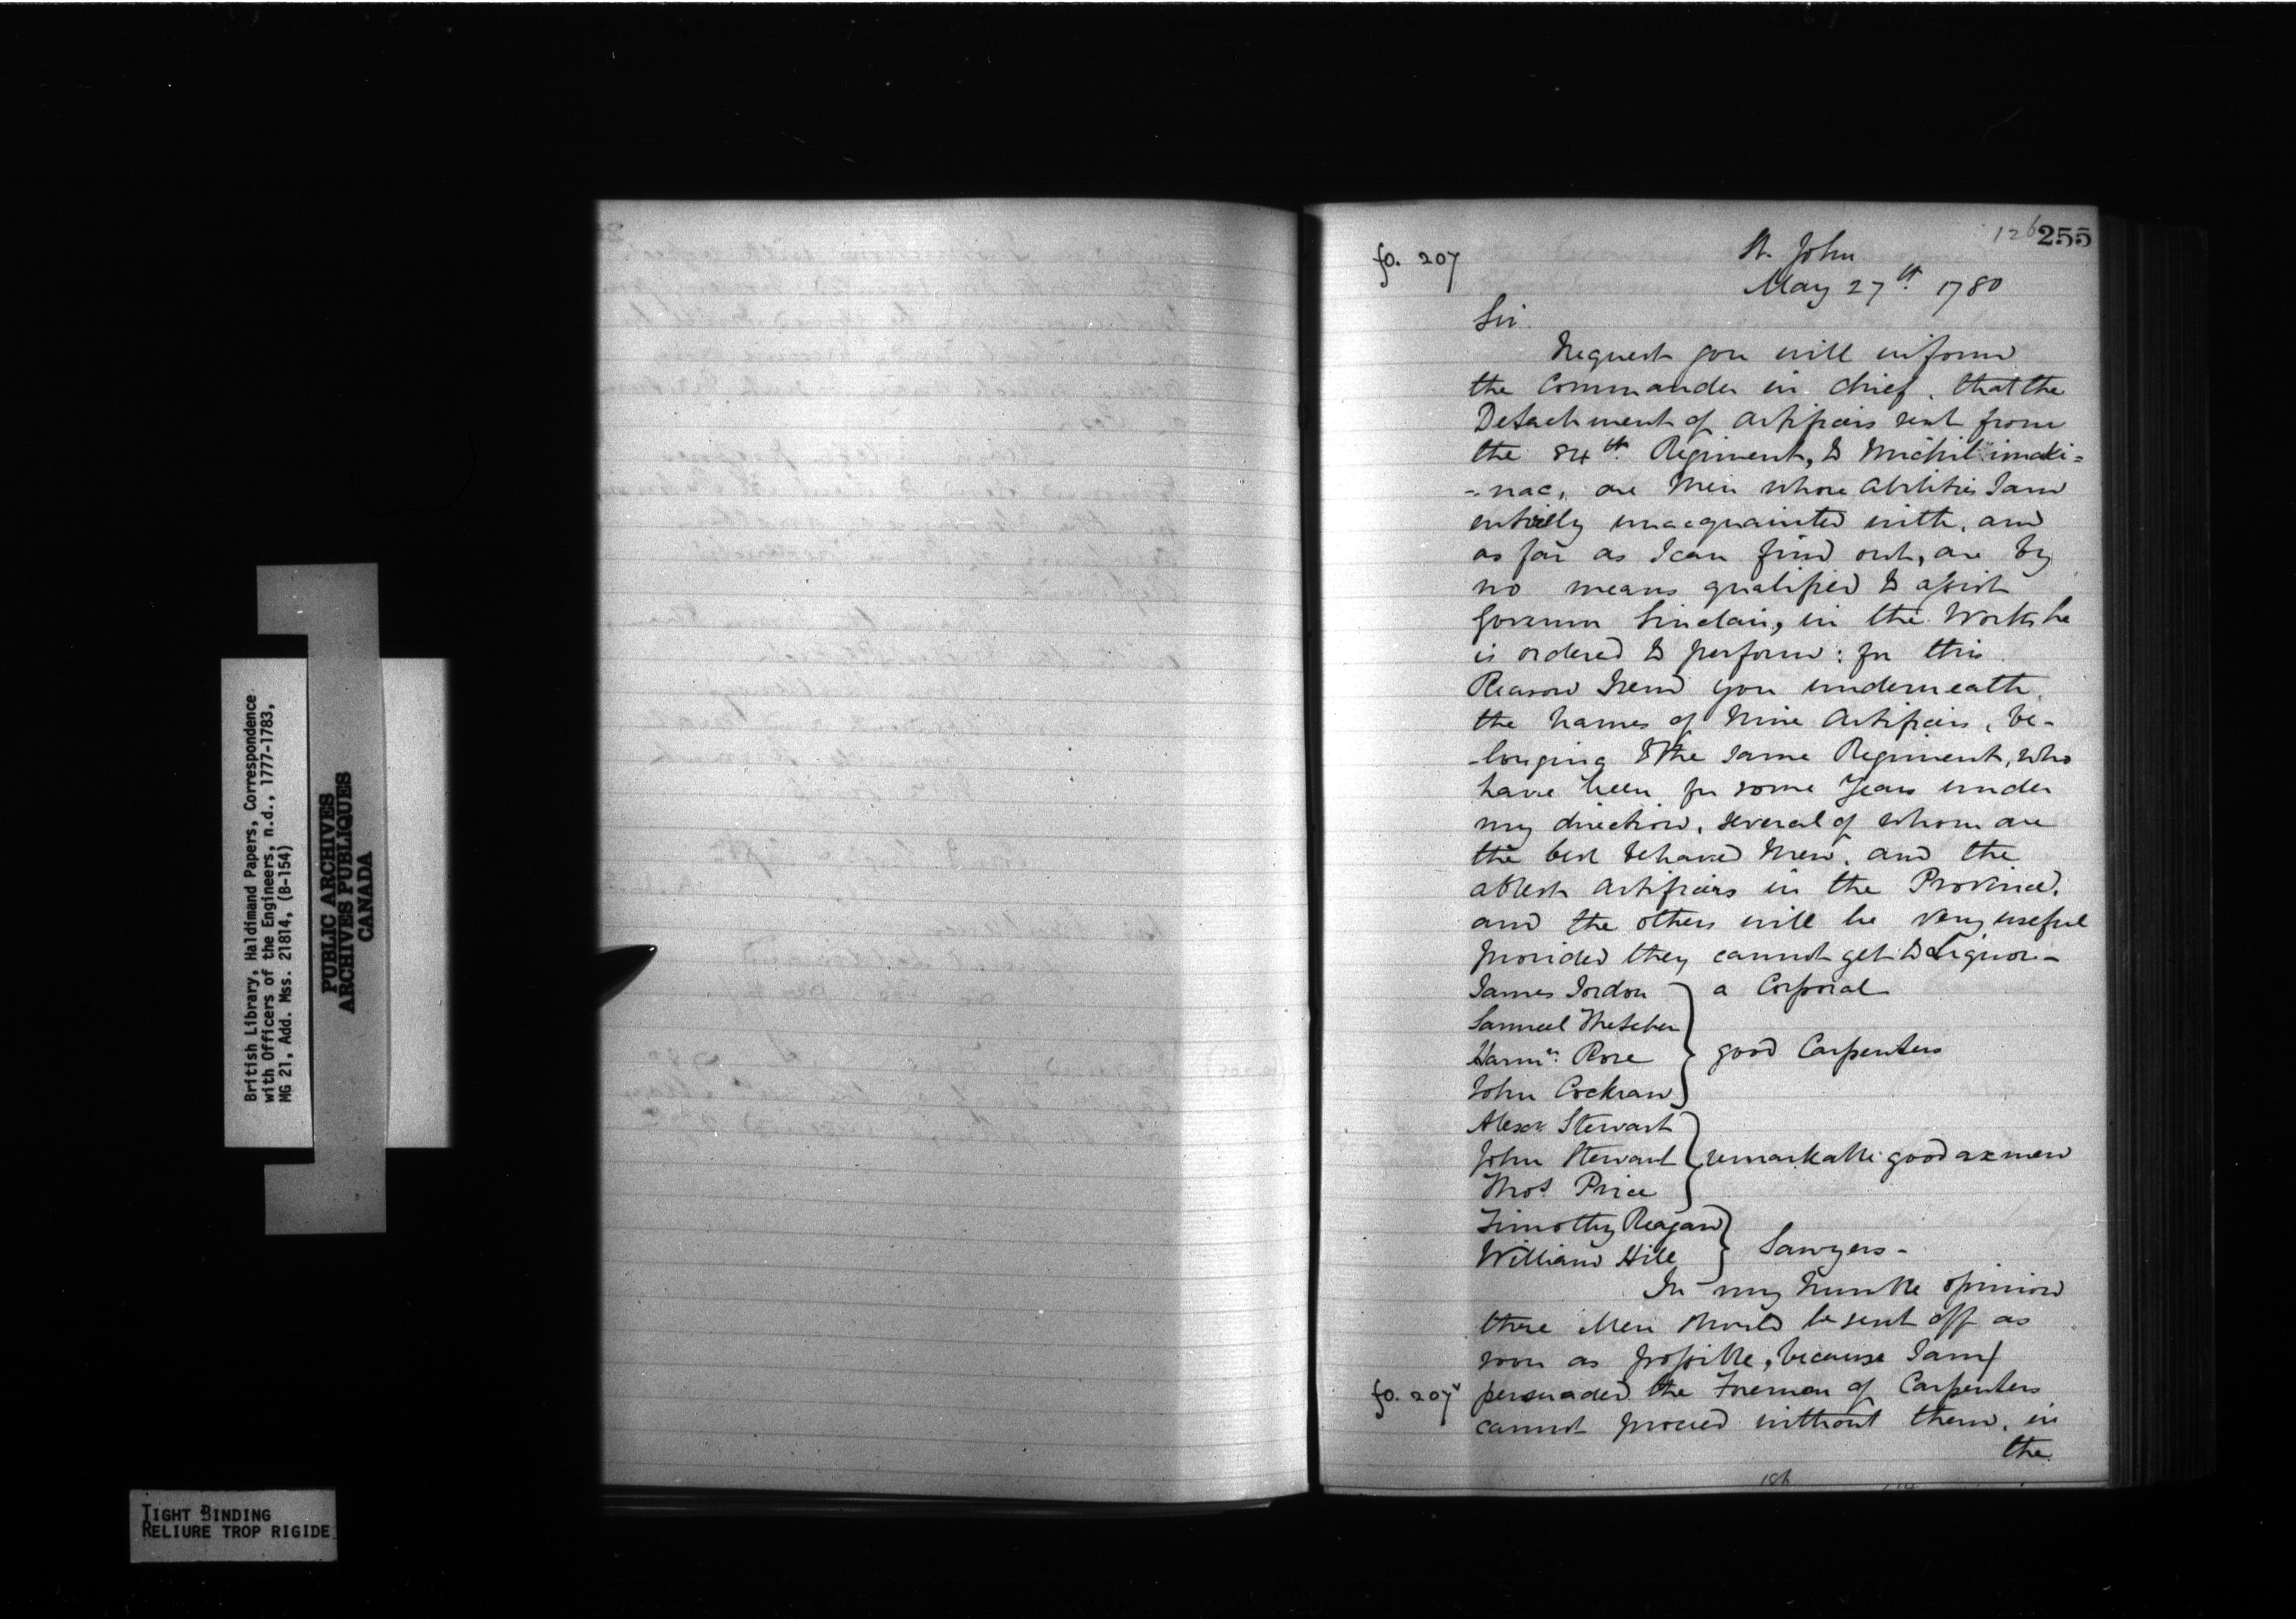 British Library, Haldimand Papers, Correspondence
with Officers of the Engineers, n.d., 1777-1783,
MG 21, Add. Mss. 21814, (B-154)
PUBLIC ARCHIVES
ARCHIVES PUBLIQUES
CANADA
TIGHT BINDING
RELIURE TROP RIGIDE
126 255
fo. 207
St. John
May 27th. 1780
Sir.
Request you will inform
the Commander in chief, that the
Detachment of Artificers sent from
the 84th. Regiment, to Michilimaki=
=nac, are Men whose Abilities I am
entirely unacquainted with, and
as far as I can find out, are by
no means qualified to assist
Governor Sinclair, in the Works he
is ordered to perform: for this
Reason I send you underneath,
the Names of Nine Artificers, be-
-longing to the same Regiment, who
have been for some Years under
my direction, several of whom are
the best behaved Men, and the
ablest Artificers in the Province,
and the others will be very useful
provided they cannot get to Liquor.-
James Jordon } a Corporal
Samuel
Rose } good Carpenters
John Cockran
Alexr. Stewart
John Stewart } remarkable good axmen
Thos. Price
Timothy Reagan
William Hill } Sawyers-
In my humble opinion
these Men should be sent off as
soon as possible, because I am/
fo. 207v persuaded the Foreman of Carpenters
cannot proceed without them, in
the
186